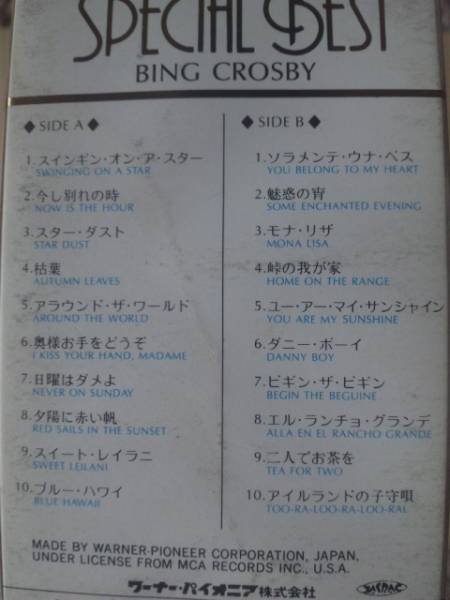 SPECIAL BEST
BING CROSBY
◆SIDE A◆
1.スインギン・オン・ア・スター
SWINGING ON A STAR
2.今し別れの時
NOW IS THE HOUR
3.スター・ダスト
STAR DUST
4.枯葉
AUTUMN LEAVES
5.アラウンド・ザ・ワールド
AROUND THE WORLD
6.奥様お手をどうぞ
I KISS YOUR HAND, MADAME
7.日曜はダメよ
NEVER ON SUNDAY
8.夕陽に赤い帆
RED SAILS IN THE SUNSET
9.スイート・レイラニ
SWEET LEILANI
10.ブルー・ハワイ
BLUE HAWAII
◆SIDE B◆
1.ソラメンテ・ウナ・ベス
YOU BELONG TO MY HEART
2.魅惑の宵
SOME ENCHANTED EVENING
3.モナ・リザ
MONA LISA
4.峠の我が家
HOME ON THE RANGE
5.ユー・アー・マイ・サンシャイン
YOU ARE MY SUNSHINE
6.ダニー・ボーイ
DANNY BOY
7.ビギン・ザ・ビギン
BEGIN THE BEGUINE
8.エル・ランチョ・グランデ
ALLA EN EL RANCHO GRANDE
9.二人でお茶を
TEA FOR TWO
10.アイルランドの子守唄
TOO-RA-LOO-RA-LOO-RAL
MADE BY WARNER-PIONEER CORPORATION, JAPAN,
UNDER LICENSE FROM MCA RECORDS INC., U.S.A.
ワーナー・パイオニア株式会社